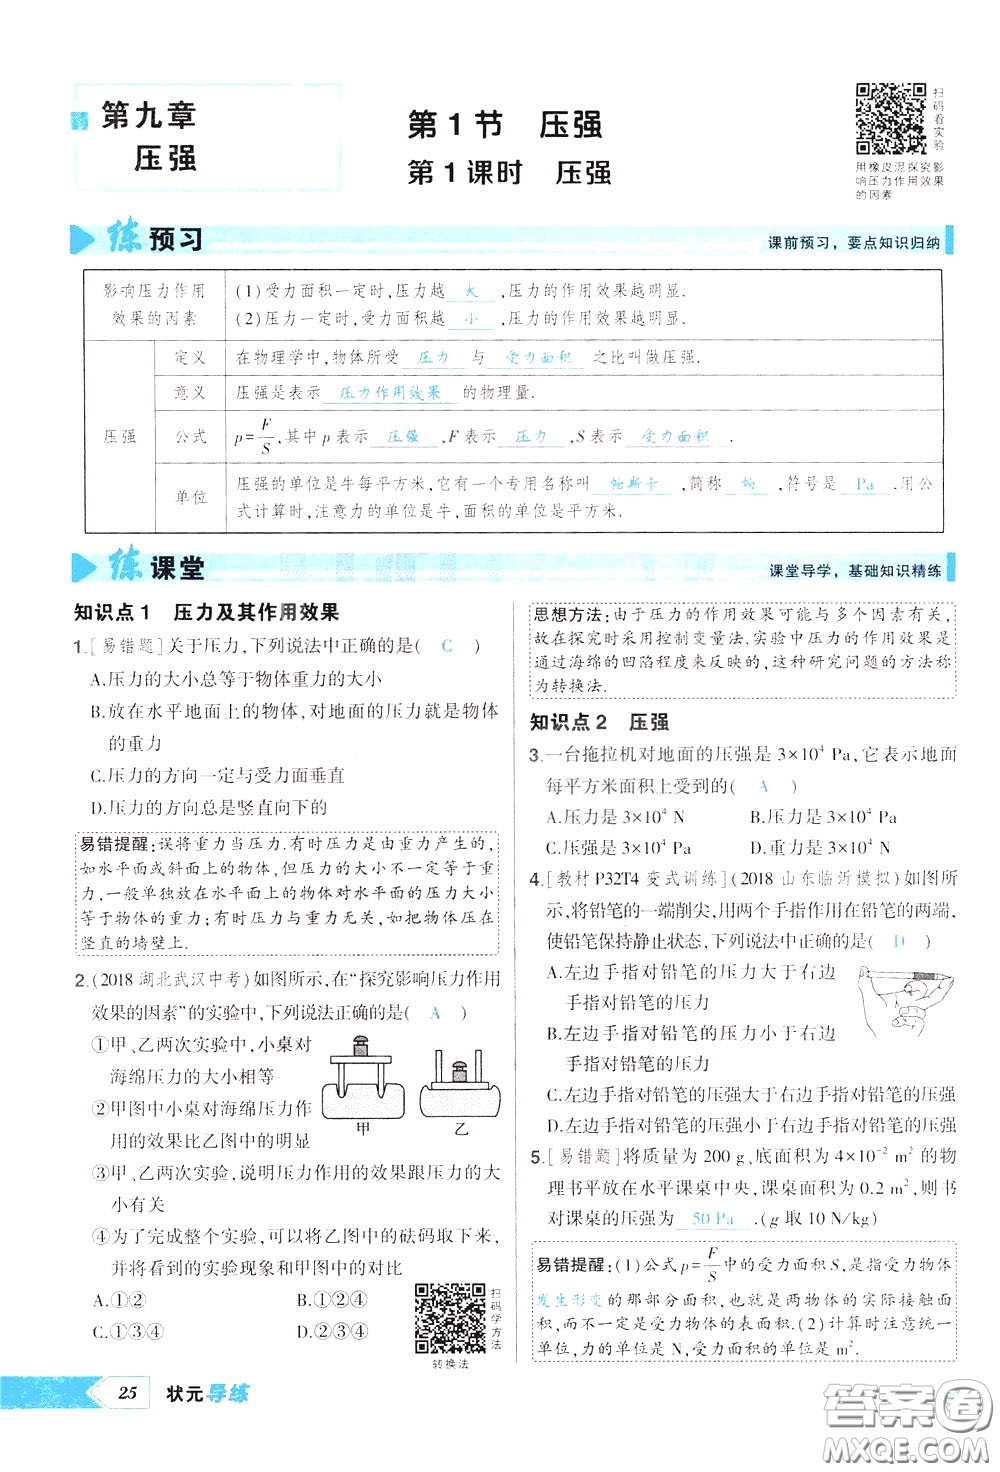 第九章
压强
第1节 压强
第1课时 压强
扫码看实验
用橡皮泥探究影
响压力作用效果
的因素
练 预习
课前预习，要点知识归纳
影响压力作用
效果的因素
(1)受力面积一定时,压力越 大 ,压力的作用效果越明显.
(2)压力一定时,受力面积越 小 ,压力的作用效果越明显.
压强
定义
在物理学中,物体所受 压力 与 受力面积 之比叫做压强.
意义
压强是表示 压力作用效果 的物理量.
公式
p=F/S,其中p表示 压强 ,F表示 压力 ,S表示 受力面积 .
单位
压强的单位是牛每平方米,它有一个专用名称叫 帕斯卡 ,简称 帕 ,符号是 Pa .用公
式计算时,注意力的单位是牛,面积的单位是平方米.
练 课堂
课堂导学，基础知识精练
知识点1 压力及其作用效果
1.[易错题]关于压力,下列说法中正确的是( C )
A.压力的大小总等于物体重力的大小
B.放在水平地面上的物体,对地面的压力就是物体
的重力
C.压力的方向一定与受力面垂直
D.压力的方向总是竖直向下的
易错提醒:误将重力当压力.有时压力是由重力产生的,
如水平面或斜面上的物体,但压力的大小不一定等于重
力,一般单独放在水平面上的物体对水平面的压力大小
等于物体的重力;有时压力与重力无关,如把物体压在
竖直的墙壁上.
2.(2018湖北武汉中考)如图所示,在“探究影响压力作用
效果的因素”的实验中,下列说法正确的是( A )
①甲、乙两次实验中,小桌对
海绵压力的大小相等
②甲图中小桌对海绵压力作
用的效果比乙图中的明显
甲
乙
③甲、乙两次实验,说明压力作用的效果跟压力的大
小有关
④为了完成整个实验,可以将乙图中的砝码取下来,
并将看到的实验现象和甲图中的对比
A.①②
B.①②④
C.①③④
D.②③④
扫码学方法
转换法
思想方法:由于压力的作用效果可能与多个因素有关,
故在探究时采用控制变量法.实验中压力的作用效果是
通过海绵的凹陷程度来反映的,这种研究问题的方法称
为转换法.
知识点2 压强
3.一台拖拉机对地面的压强是3×10⁴ Pa,它表示地面
每平方米面积上受到的( A )
A.压力是3×10⁴ N
B.压力是3×10⁴ Pa
C.压强是3×10⁴ N
D.重力是3×10⁴ N
4.[教材P32T4变式训练](2018山东临沂模拟)如图所
示,将铅笔的一端削尖,用两个手指作用在铅笔的两端,
使铅笔保持静止状态,下列说法中正确的是( D )
A.左边手指对铅笔的压力大于右边
手指对铅笔的压力
B.左边手指对铅笔的压力小于右边
手指对铅笔的压力
C.左边手指对铅笔的压强大于右边手指对铅笔的压强
D.左边手指对铅笔的压强小于右边手指对铅笔的压强
5.[易错题]将质量为200 g、底面积为4×10⁻² m²的物
理书平放在水平课桌中央,课桌面积为0.2 m²,则书
对课桌的压强为 50 Pa .(g取10 N/kg)
易错提醒:(1)公式p=F/S中的受力面积S,是指受力物体
发生形变的那部分面积,也就是两物体的实际接触面
积,而不一定是受力物体的表面积.(2)计算时注意统一
单位,力的单位是N,受力面积的单位是m².
25 状元导练
答案圈
MXQE.COM